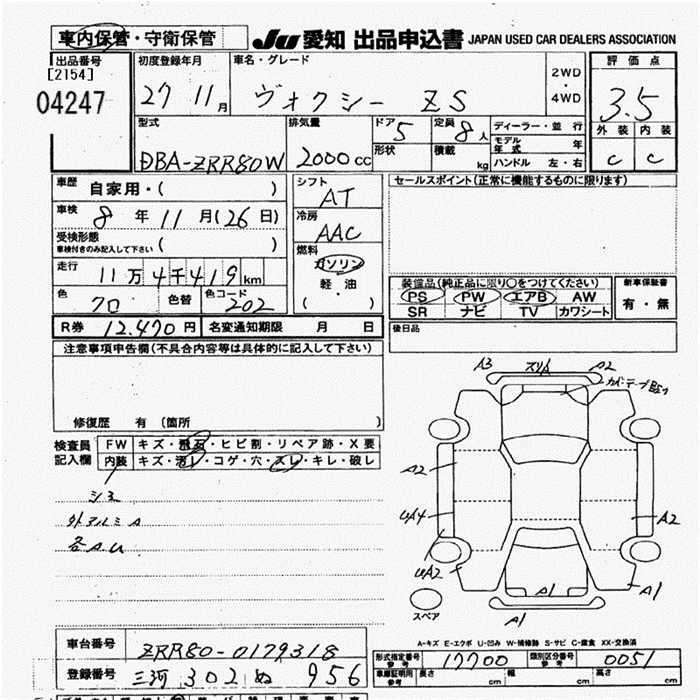 車内保管・守衛保管
Ju 愛知 出品申込書 JAPAN USED CAR DEALERS ASSOCIATION
出品番号
[2154]
04247
初度登録年月
27 11月
車名・グレード
ヴォクシー ZS
2WD
・
4WD
評価点
3.5
外装 内装
C C
型式
DBA-ZRR80W
排気量
2000cc
ドア 5
形状
定員 8人
積載 kg
ディーラー・並行
モデル年式 年
ハンドル 左・右
車歴 自家用・( )
車検 8年11月(26日)
受検形態
車検付きのみ記入して下さい ( )
走行 11万4千419km
色 クロ 色替 色コード 202
R券 12,470円 名変通知期限 月 日
シフト
AT
冷房
AAC
燃料
ガソリン
軽・油
( )
セールスポイント(正常に機能するものに限ります)
装備品(純正品に限り○をつけてください)
PS PW エアB AW
SR ナビ TV カワシート
新車保証書
有・無
後日品
注意事項申告欄(不具合内容等は具体的に記入して下さい)
修復歴 有 (箇所 )
検査員
記入欄
FW キズ・飛石・ヒビ割・リペア跡・X要
内装 キズ・汚レ・コゲ・穴・スレ・キレ・破レ
シミ
外アルミA
各AU
A3 スリA A2
A2
UA4
UA2
A2
A1
A1
A1
スペア
A-キズ E-エクボ U-凹み W-補修跡 S-サビ C-腐食 XX-交換済
車台番号 ZRR80-0179318
登録番号 三河 302 ぬ 956
形式指定番号
参考 17700
類別区分番号
参考 0051
車庫証明用
参考
長さ cm 幅 cm 高さ cm